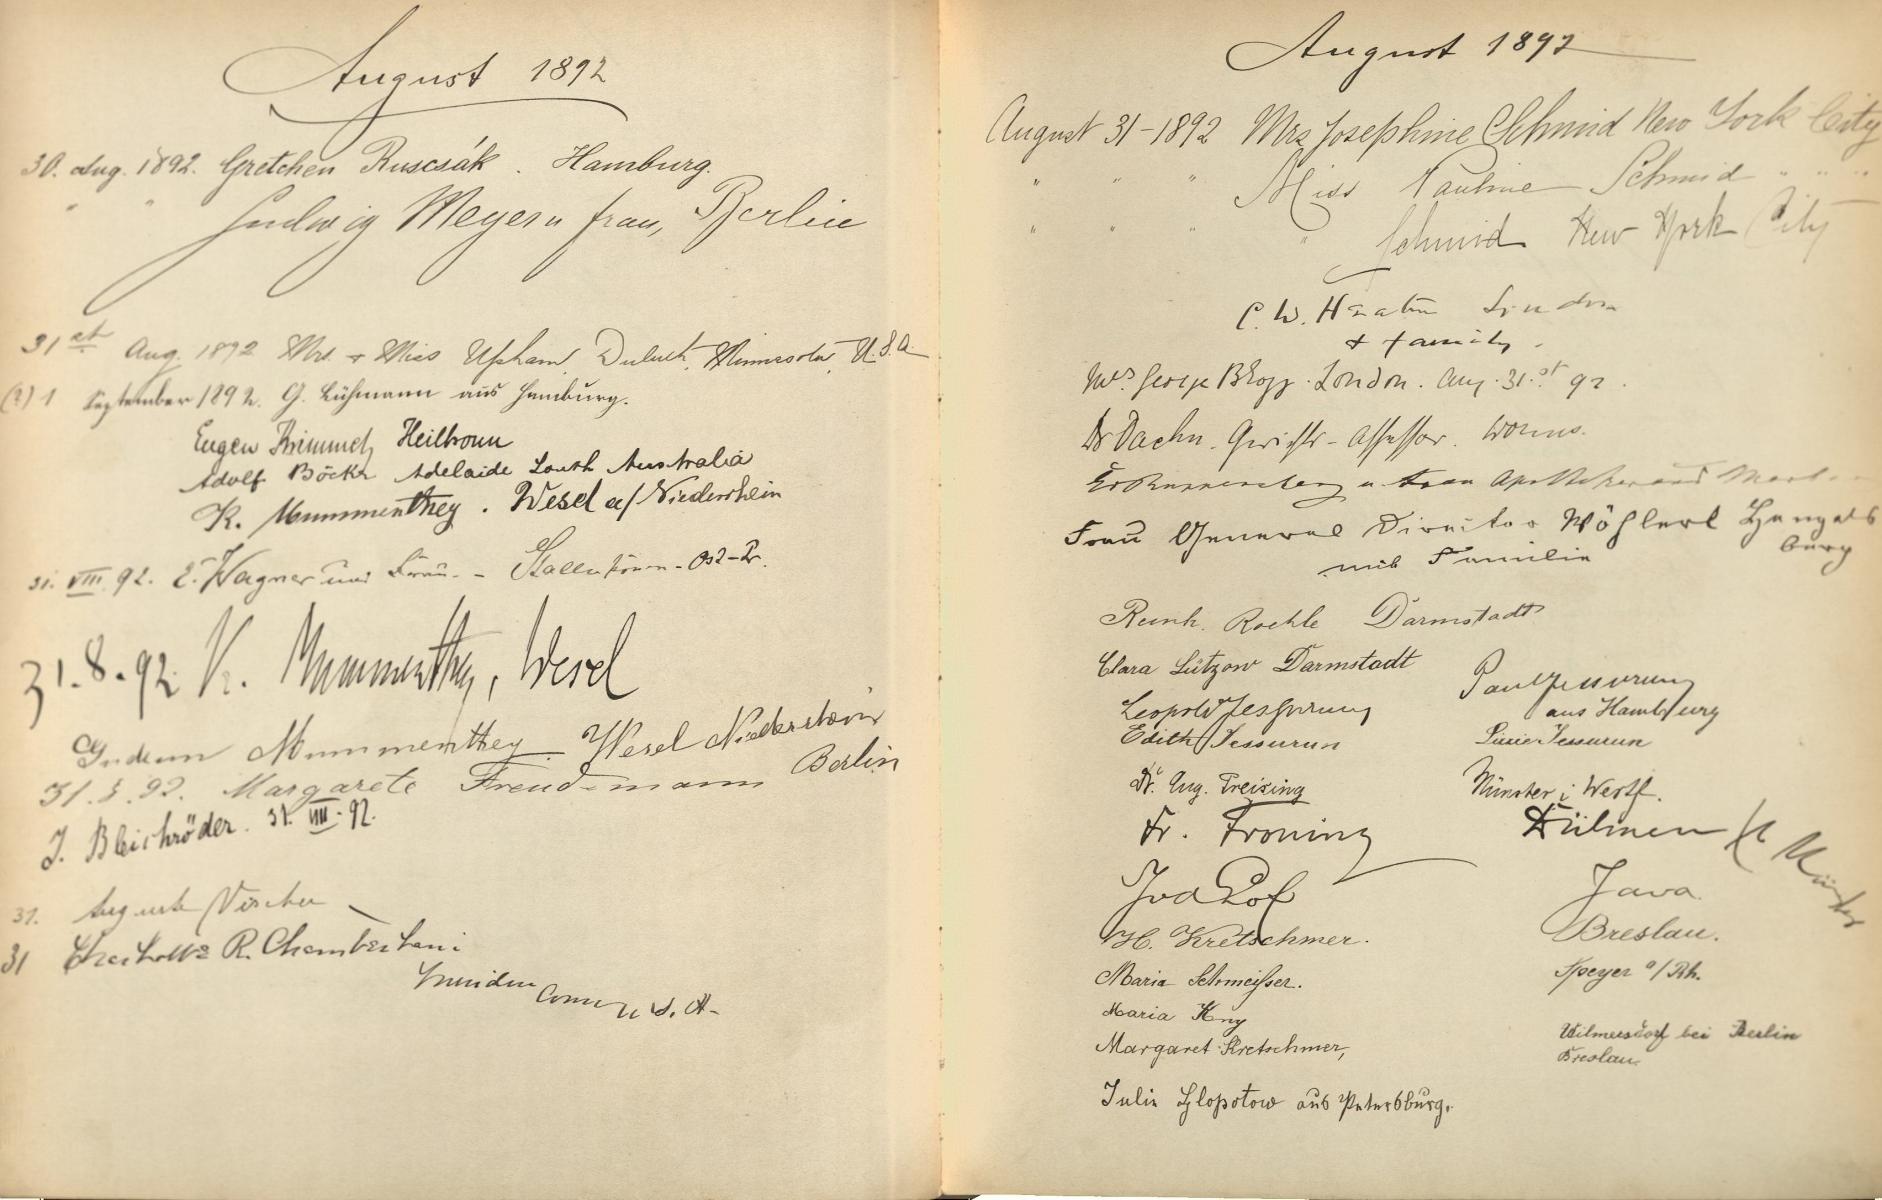 August 1892
30. Aug. 1892. Gretchen Ruscsák. Hamburg.
" " Ludwig Meyer u frau, Berlin
31st Aug. 1892 Mrs. + Miss Upham, Duluth, Minnesota, U.S.A.
(?) 1 September 1892. G. Lühmann aus Hamburg.
Eugen Heilbronn
Adolf Böckr Adelaide South Australia
K. Mummenthey. Wesel a/Niederrhein
31. VIII. 92. E. Wagner und Frau. - Stallupönen - Ost-Pr.
31.8.92 K. Mummenthey, Wesel
Gudrun Mummenthey Wesel Niederrhein
31.8.92. Margarete Freudemann Berlin
J. Bleichröder. 31. VIII. 92.
31. Auguste Vischer
31 Charlotte R. Chamberlain
Meriden Conn U.S.A.
August 1892
August 31-1892 Mrs Josephine Schmid New York City
" " " Miss Pauline Schmid " " "
" " " " Schmid New York City
C. W. Heaton London
+ family.
Mrs George Bhogg. London. Aug. 31st 92.
Dr Daehn. Gerichts-Assessor. Worms.
u. Frau
Frau General Director Wöhlert
mit Familie
Reinh. Roehle Darmstadt
Clara Lützow Darmstadt
Leopold Jessurun
Paul Jessurun
aus Hamburg
Edith Jessurun
Lucie Jessurun
Dr. Aug. Freising Münster i Westf.
Fr. Froning Dülmen b/ Münster
Java
H. Kretschmer. Breslau.
Maria Schmeisser. Speyer a/Rh.
Maria Kny Wilmersdorf bei Berlin
Margaret Kretschmer, Breslau.
Julie Hlopotow aus Petersburg.